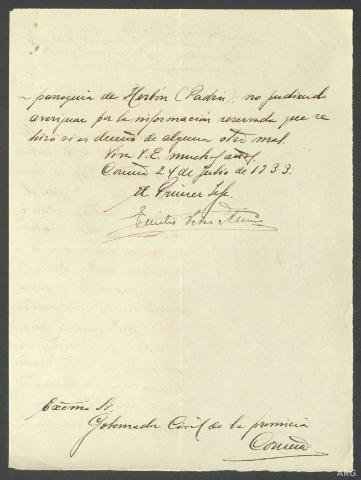 parroquia de Herbón (Padrón); no pudiendo
averiguar por la información reservada que se
hizo si es dueño de alguna otra más.
Viva V.E. muchos años.
Coruña 24 de Julio de 1933.
El Primer Jefe
Excmo. Sr.
Gobernador Civil de la provincia
Coruña
ARG